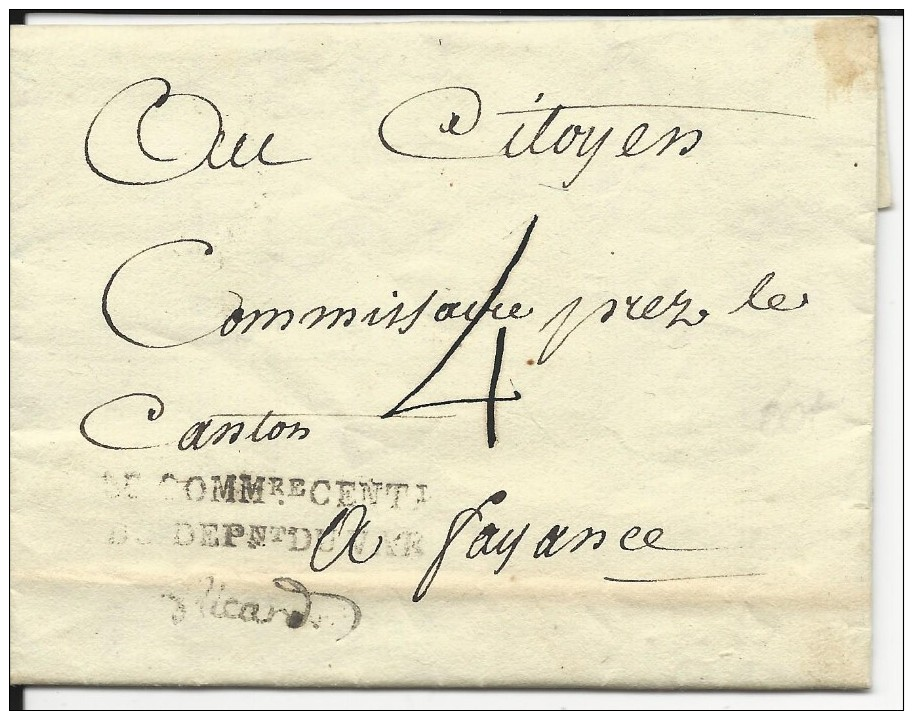 Au Citoyen
Commissaire prez le
4
Canton
LE COMMRE CENTL
DU DEPNT DU VAR
A fayance
Ricard